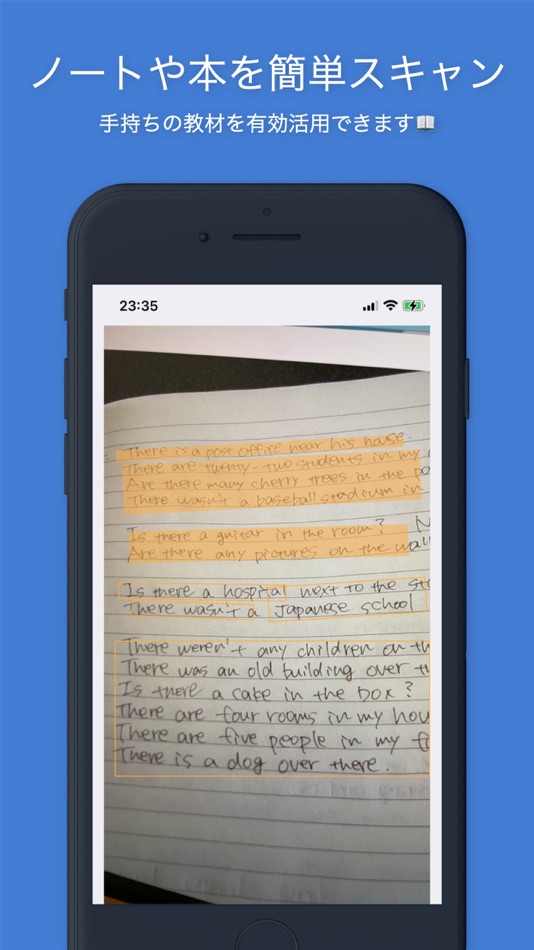 ノートや本を簡単スキャン
手持ちの教材を有効活用できます📖
23:35
There is a post office near his house.
There are twenty-two students in my
Are there many cherry trees in the
There wasn't a baseball stadium in
Is there a guitar in the room?
Are there any pictures on the wall
Is there a hospital next to the
There wasn't a Japanese school
There weren't any children on
There was an old building over
Is there a cake in the box?
There are four rooms in my
There are five people in my
There is a dog over there.